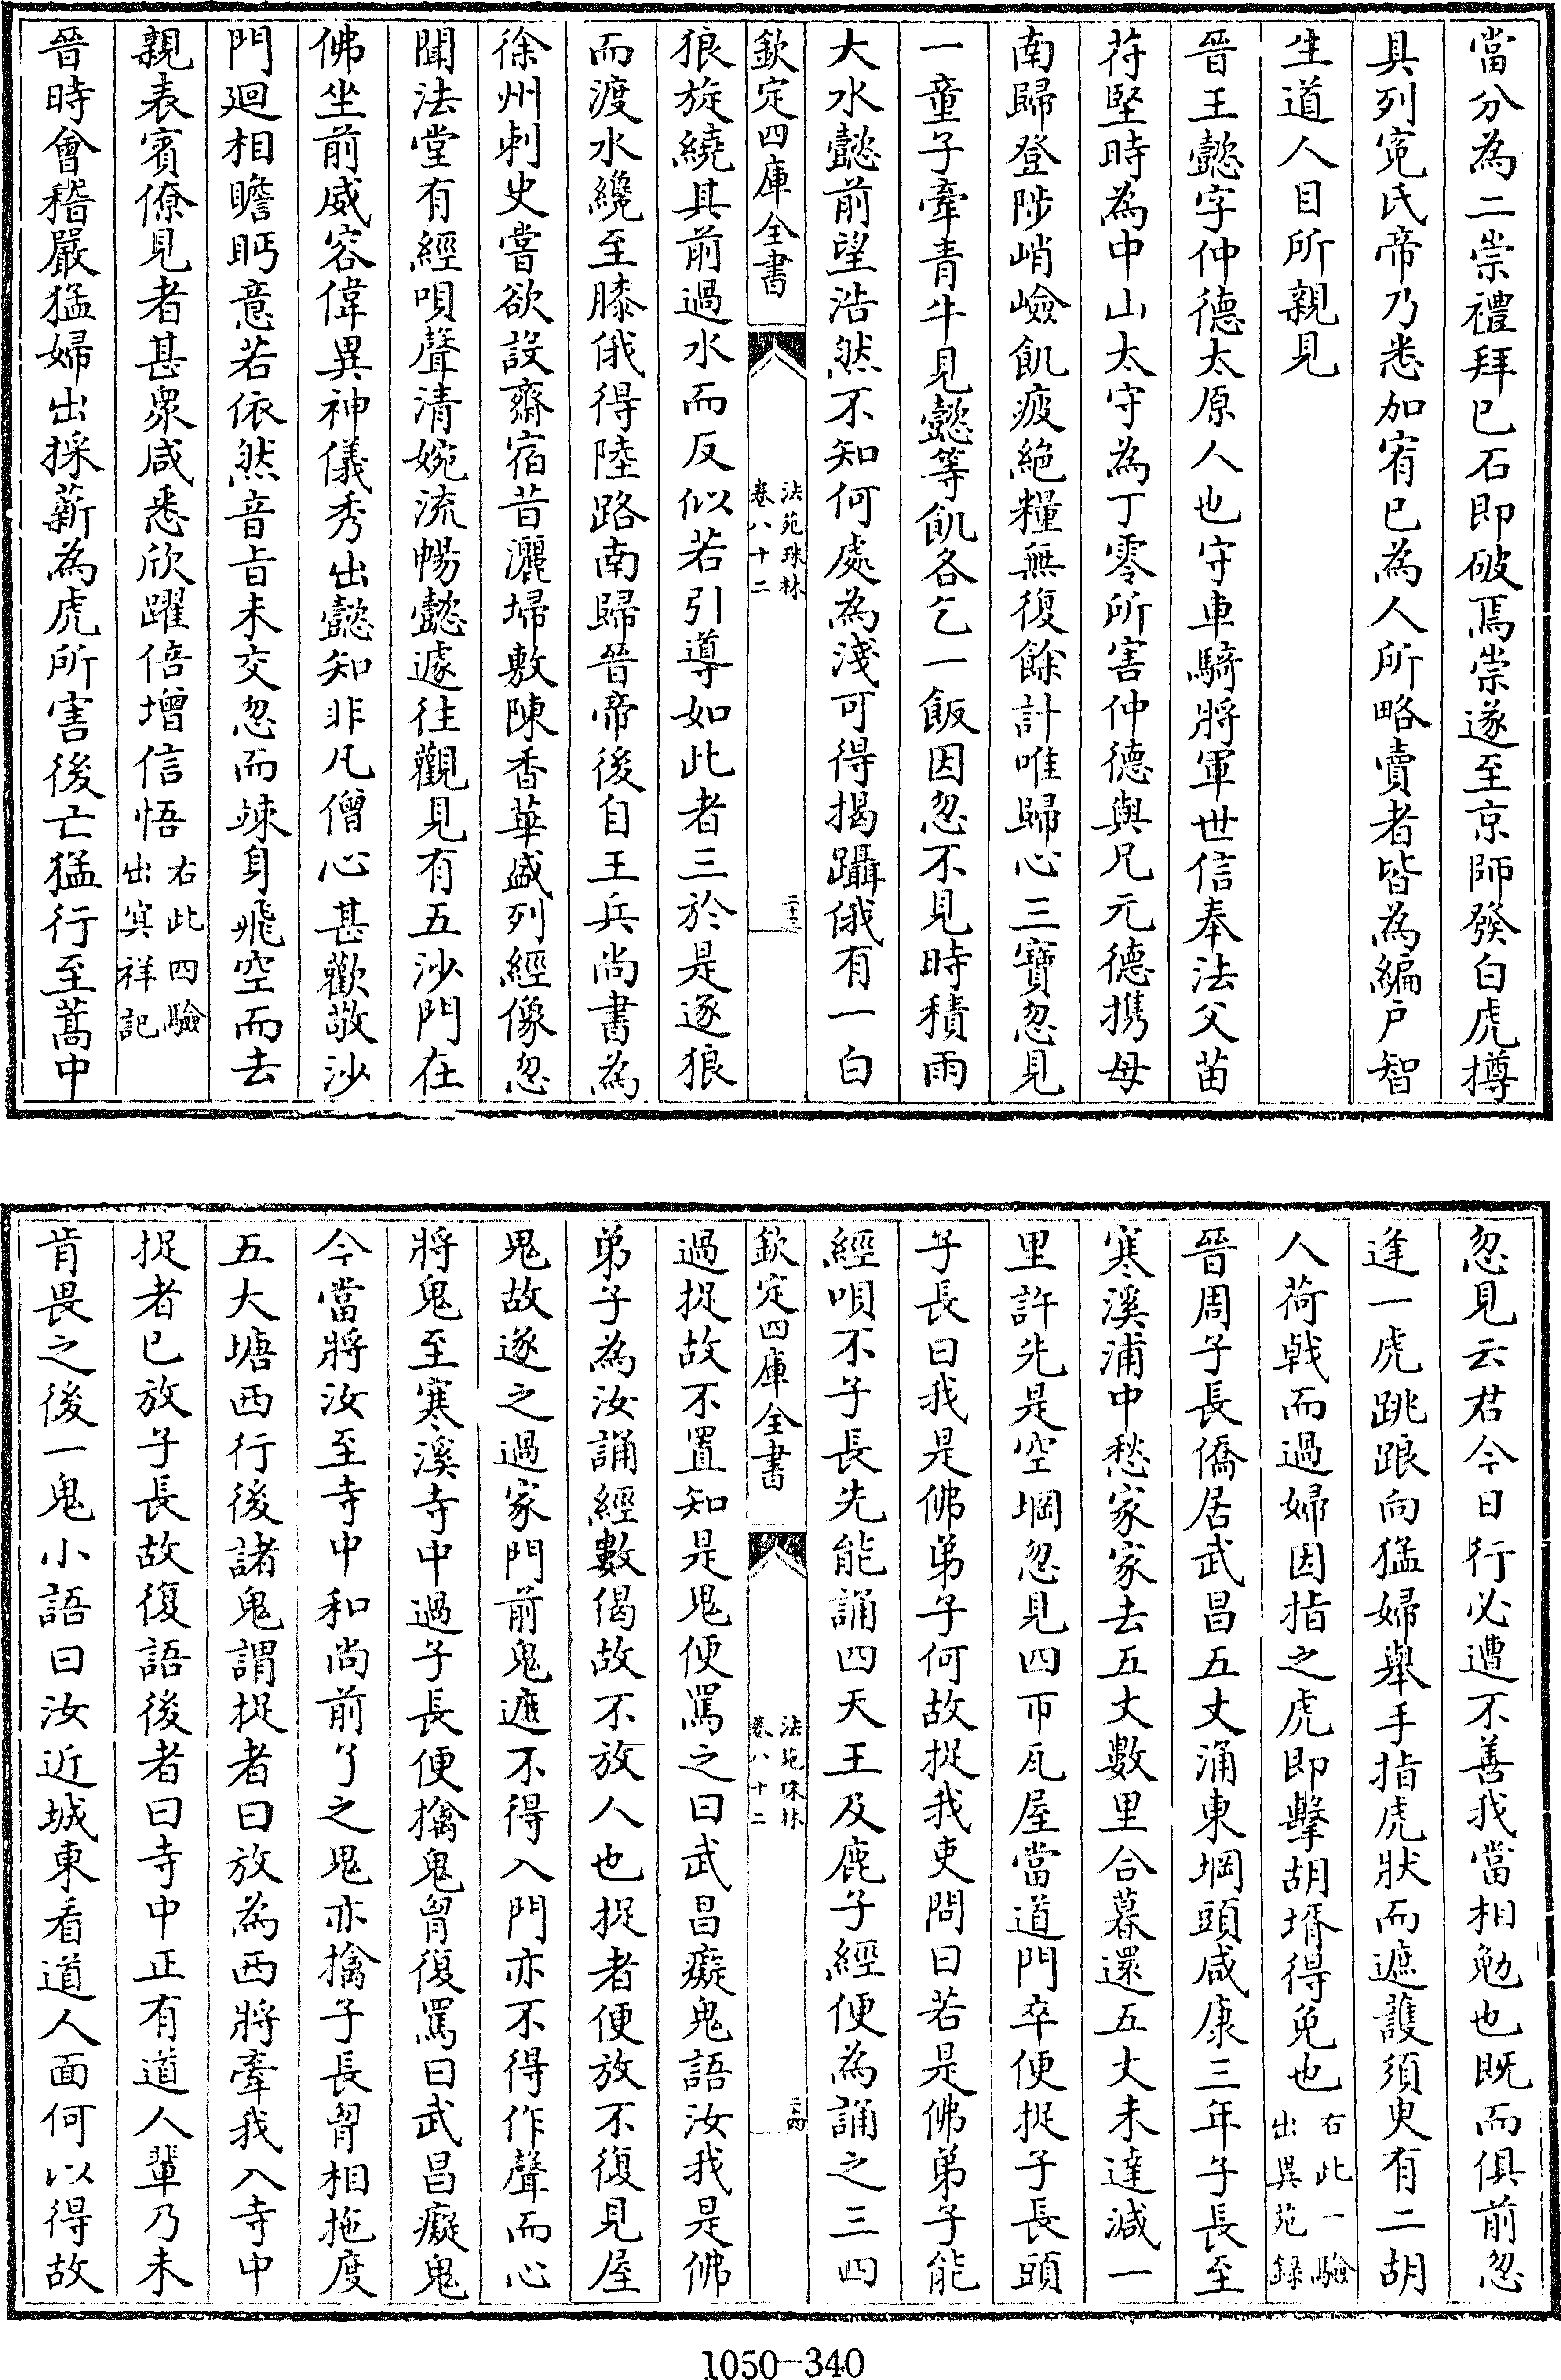 當分為二崇禮拜已石即破焉崇遂至京師發白虎摶
具列寃氏帝乃悉加宥已為人所略賣者皆為編戶智
生道人目所親見
晉王懿字仲德太原人也守車騎將軍世信奉法父苗
苻堅時為中山太守為丁零所害仲德與兄元德携母
南歸登陟峭嶮飢疲絶糧無復餘計唯歸心三寶忽見
一童子牽青牛見懿等飢各乞一飯因忽不見時積雨
大水懿前望浩然不知何處為淺可得揭躡俄有一白
欽定四庫全書
法苑珠林
卷八十二
二十三
狼旋繞其前過水而反似若引導如此者三於是逐狼
而渡水纔至膝俄得陸路南歸晉帝後自王兵尚書為
徐州刺史嘗欲設齋宿昔灑埽敷陳香華盛列經像忽
聞法堂有經唄聲清婉流暢懿遽往觀見有五沙門在
佛坐前威容偉異神儀秀出懿知非凡僧心甚歡敬沙
門廻相瞻眄意若依然音旨未交忽而竦身飛空而去
親表賓僚見者甚衆咸悉欣躍倍增信悟右此四驗出㝠祥記
晉時會稽嚴猛婦出採薪為虎所害後亡猛行至蒿中
忽見云君今日行必遭不善我當相勉也既而俱前忽
逢一虎跳踉向猛婦舉手指虎狀而遮護須臾有二胡
人荷戟而過婦因指之虎即擊胡壻得免也右此一驗出異苑録
晉周子長僑居武昌五丈涌東堈頭咸康三年子長至
寒溪浦中愁家家去五丈數里合暮還五丈未達減一
里許先是空堈忽見四帀瓦屋當道門卒便捉子長頭
子長曰我是佛弟子何故捉我吏問曰若是佛弟子能
經唄不子長先能誦四天王及鹿子經便為誦之三四
欽定四庫全書
法苑珠林
卷八十二
二十四
過捉故不置知是鬼便罵之曰武昌癡鬼語汝我是佛
弟子為汝誦經數偈故不放人也捉者便放不復見屋
鬼故逐之過家門前鬼遮不得入門亦不得作聲而心
將鬼至寒溪寺中過子長便擒鬼胷復罵曰武昌癡鬼
今當將汝至寺中和尚前了之鬼亦擒子長胷相拖度
五大塘西行後諸鬼謂捉者曰放為西將牽我入寺中
捉者已放子長故復語後者曰寺中正有道人輩乃未
肯畏之後一鬼小語曰汝近城東看道人面何以得故
1050-340